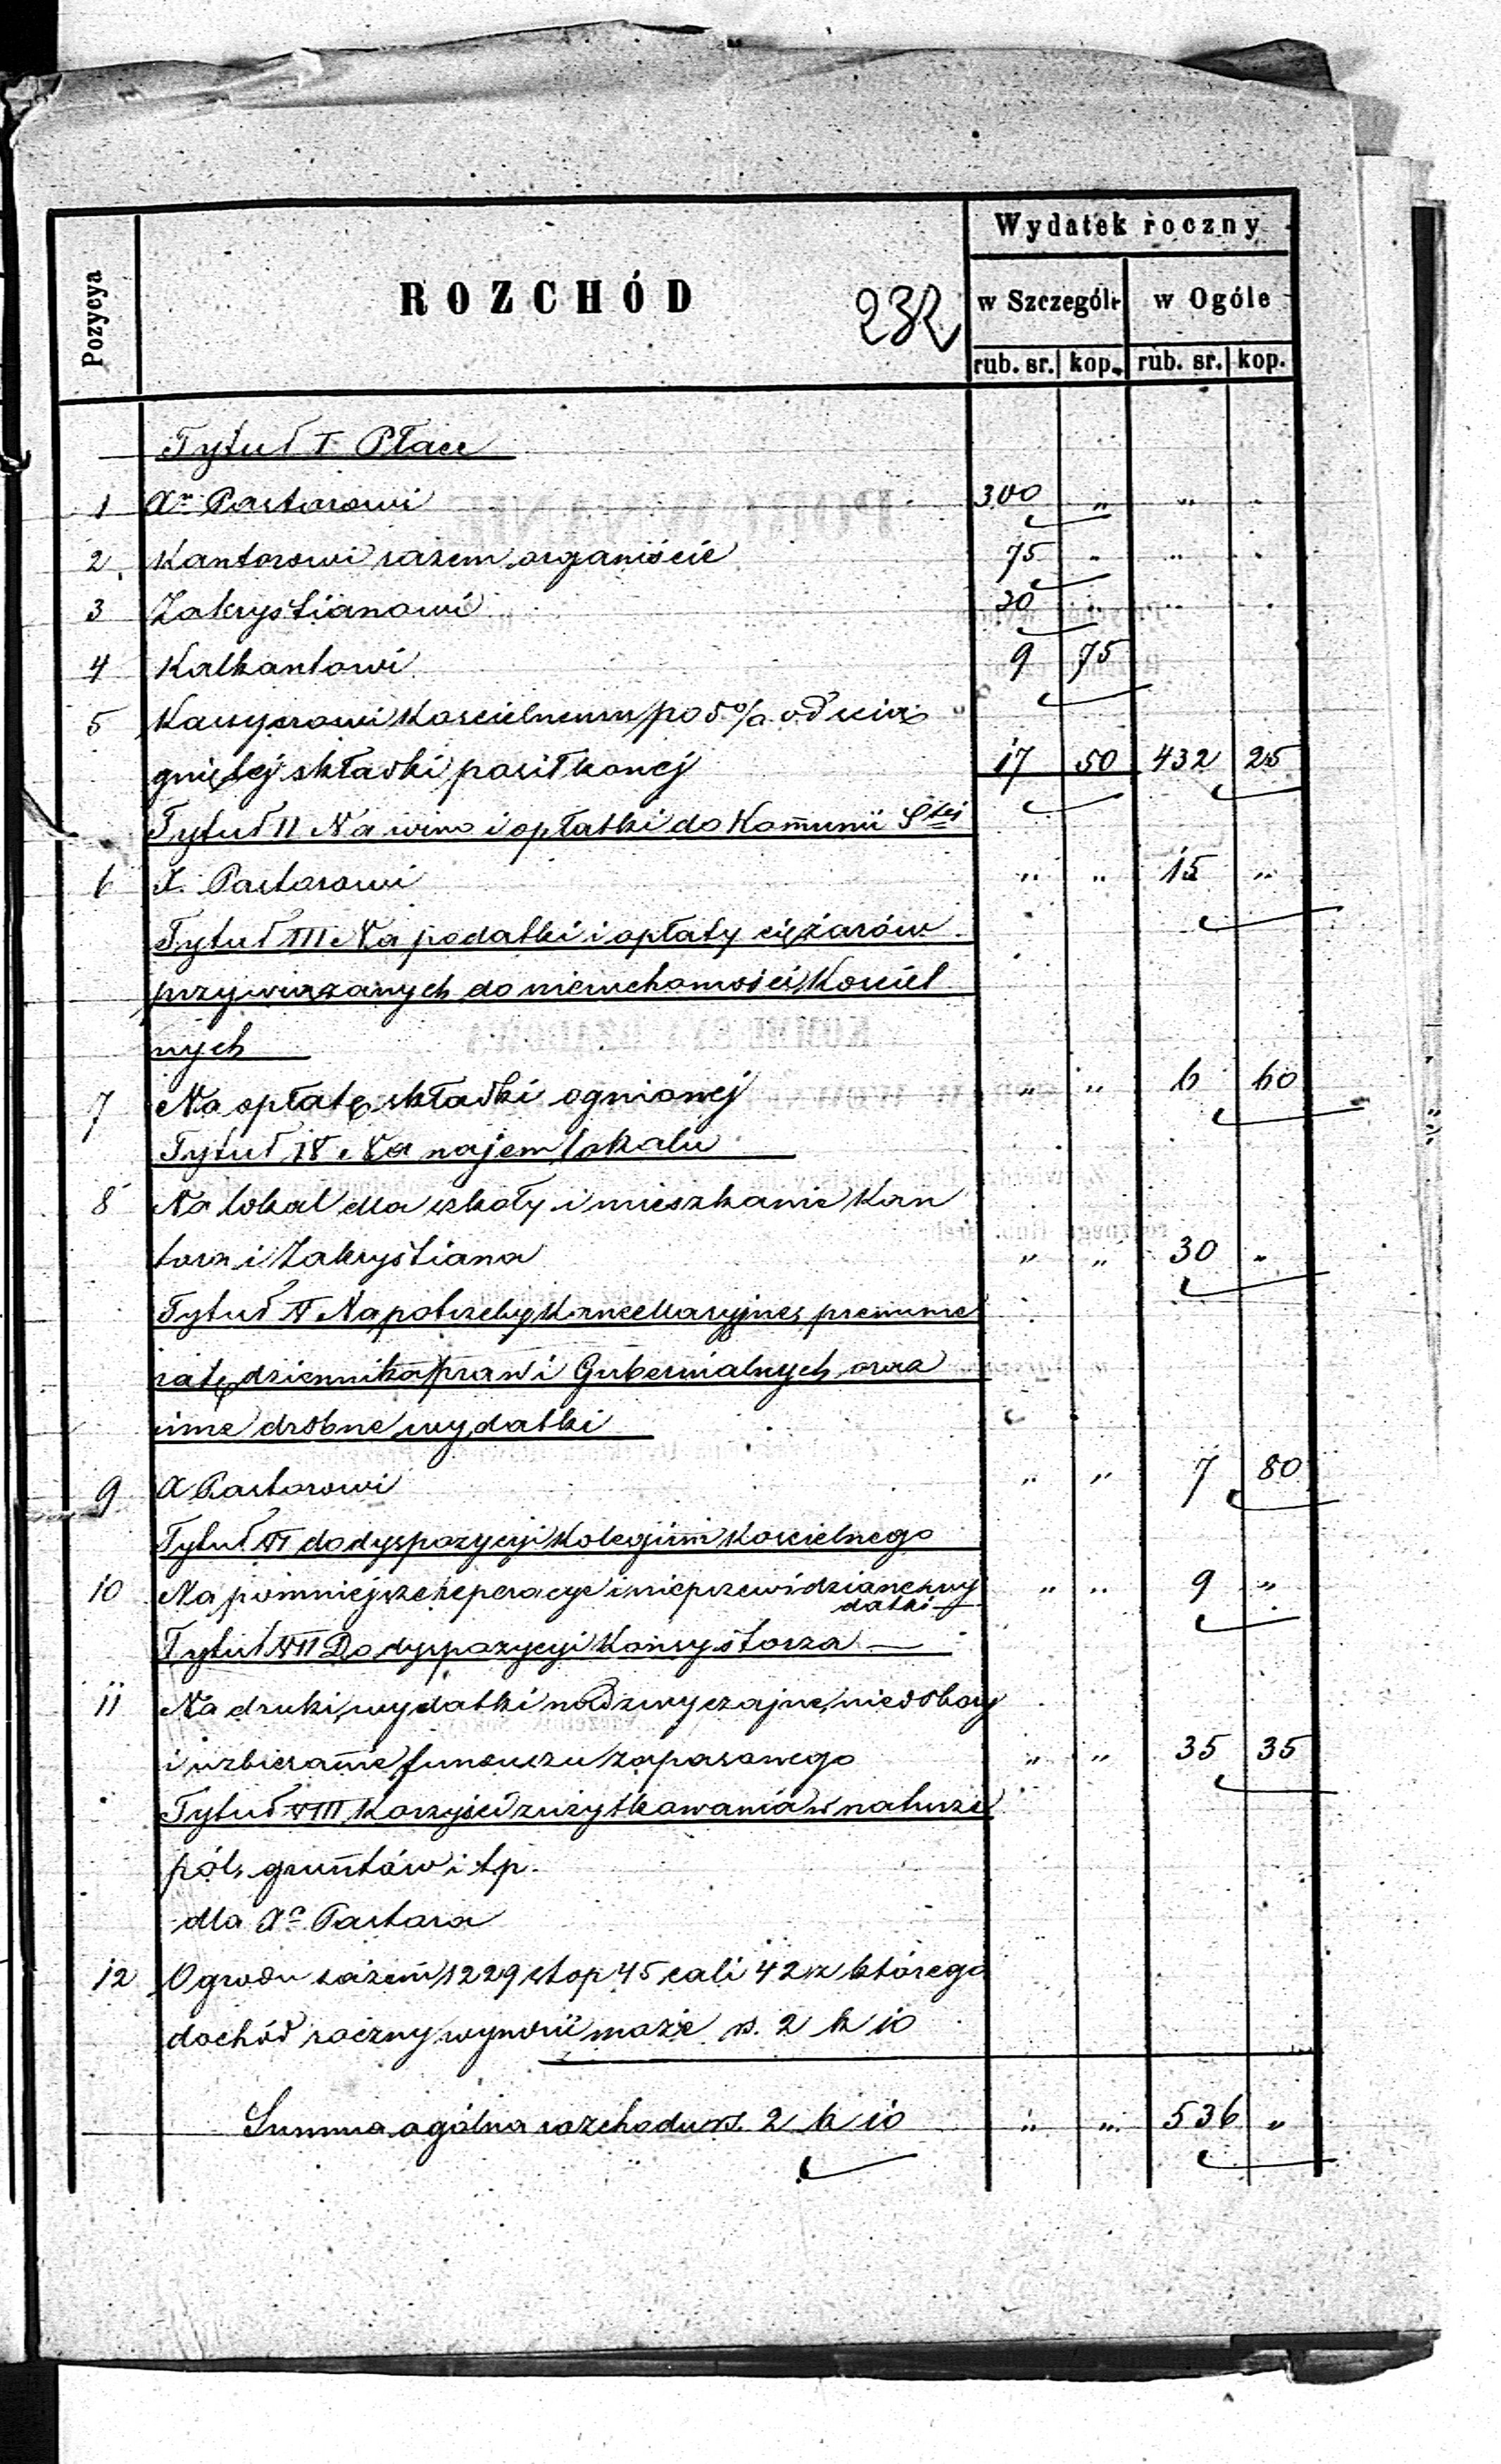 Wydatek roczny
Pozycya
ROZCHÓD
232
w Szczególe w Ogóle
rub. sr. kop. rub. sr. kop.
Tytuł I Płace
1 Xu Pastorowi 300 " " "
2 Kantorowi razem organiście 75 " " "
3 Zakrystianowi 30 " " "
4 Kalkantowi 9 75
5 Kassyerowi Kościelnemu po 5% od ścią
gniętej składki posiłkowej 17 50 432 25
Tytuł II Na wino i opłatki do Komunii Stej
6 X. Pastorowi " " 15 "
Tytuł III Na podatki i opłaty ciężarów
przywiązanych do nieruchomości Kościel
nych
7 Na opłatę składki ogniowej " " 6 60
Tytuł IV Na najem lokalu
8 Na lokal dla szkoły i mieszkanie Kan
tora i Zakrystiana " " 30 "
Tytuł V Na potrzeby Kancellaryjne, prenume
ratę dziennika praw i Gubernialnych oraz
inne drobne wydatki
9 X Pastorowi " " 7 80
Tytuł VI do dyspozycyi Kolegium Kościelnego
10 Na pomniejsze reperacye i nieprzewidziane wy " " 9 "
datki
Tytuł VII Do dyspozycyi Konsystorza
11 Na druki, wydatki nadzwyczajne, niedobory
i uzbieranie funduszu zapasowego " " 35 35
Tytuł VIII Korzyści z użytkowania w naturze
pól, gruntów i tp.
dla Xa Pastora
12 Ogrodu sążeni 1229 stop 45 cali 42 z którego
dochód roczny wynosić może rs. 2 k 10
Summa ogólna rozchodu rs. 2 k 10 " " 536 "